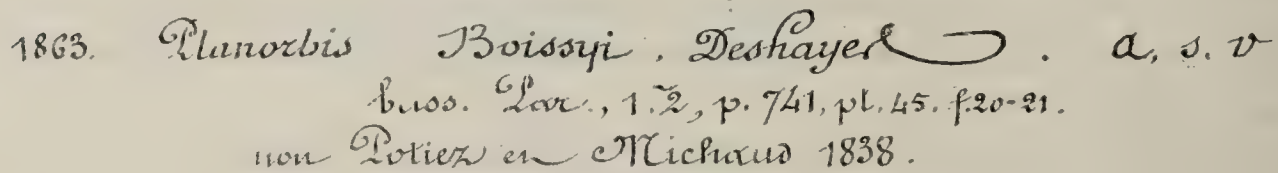 1863. Planorbis Boissyi. Deshayes. a, s. v
bass. Par., t. 2, p. 741, pl. 45. f. 20-21.
non Potiez en Michaud 1838.